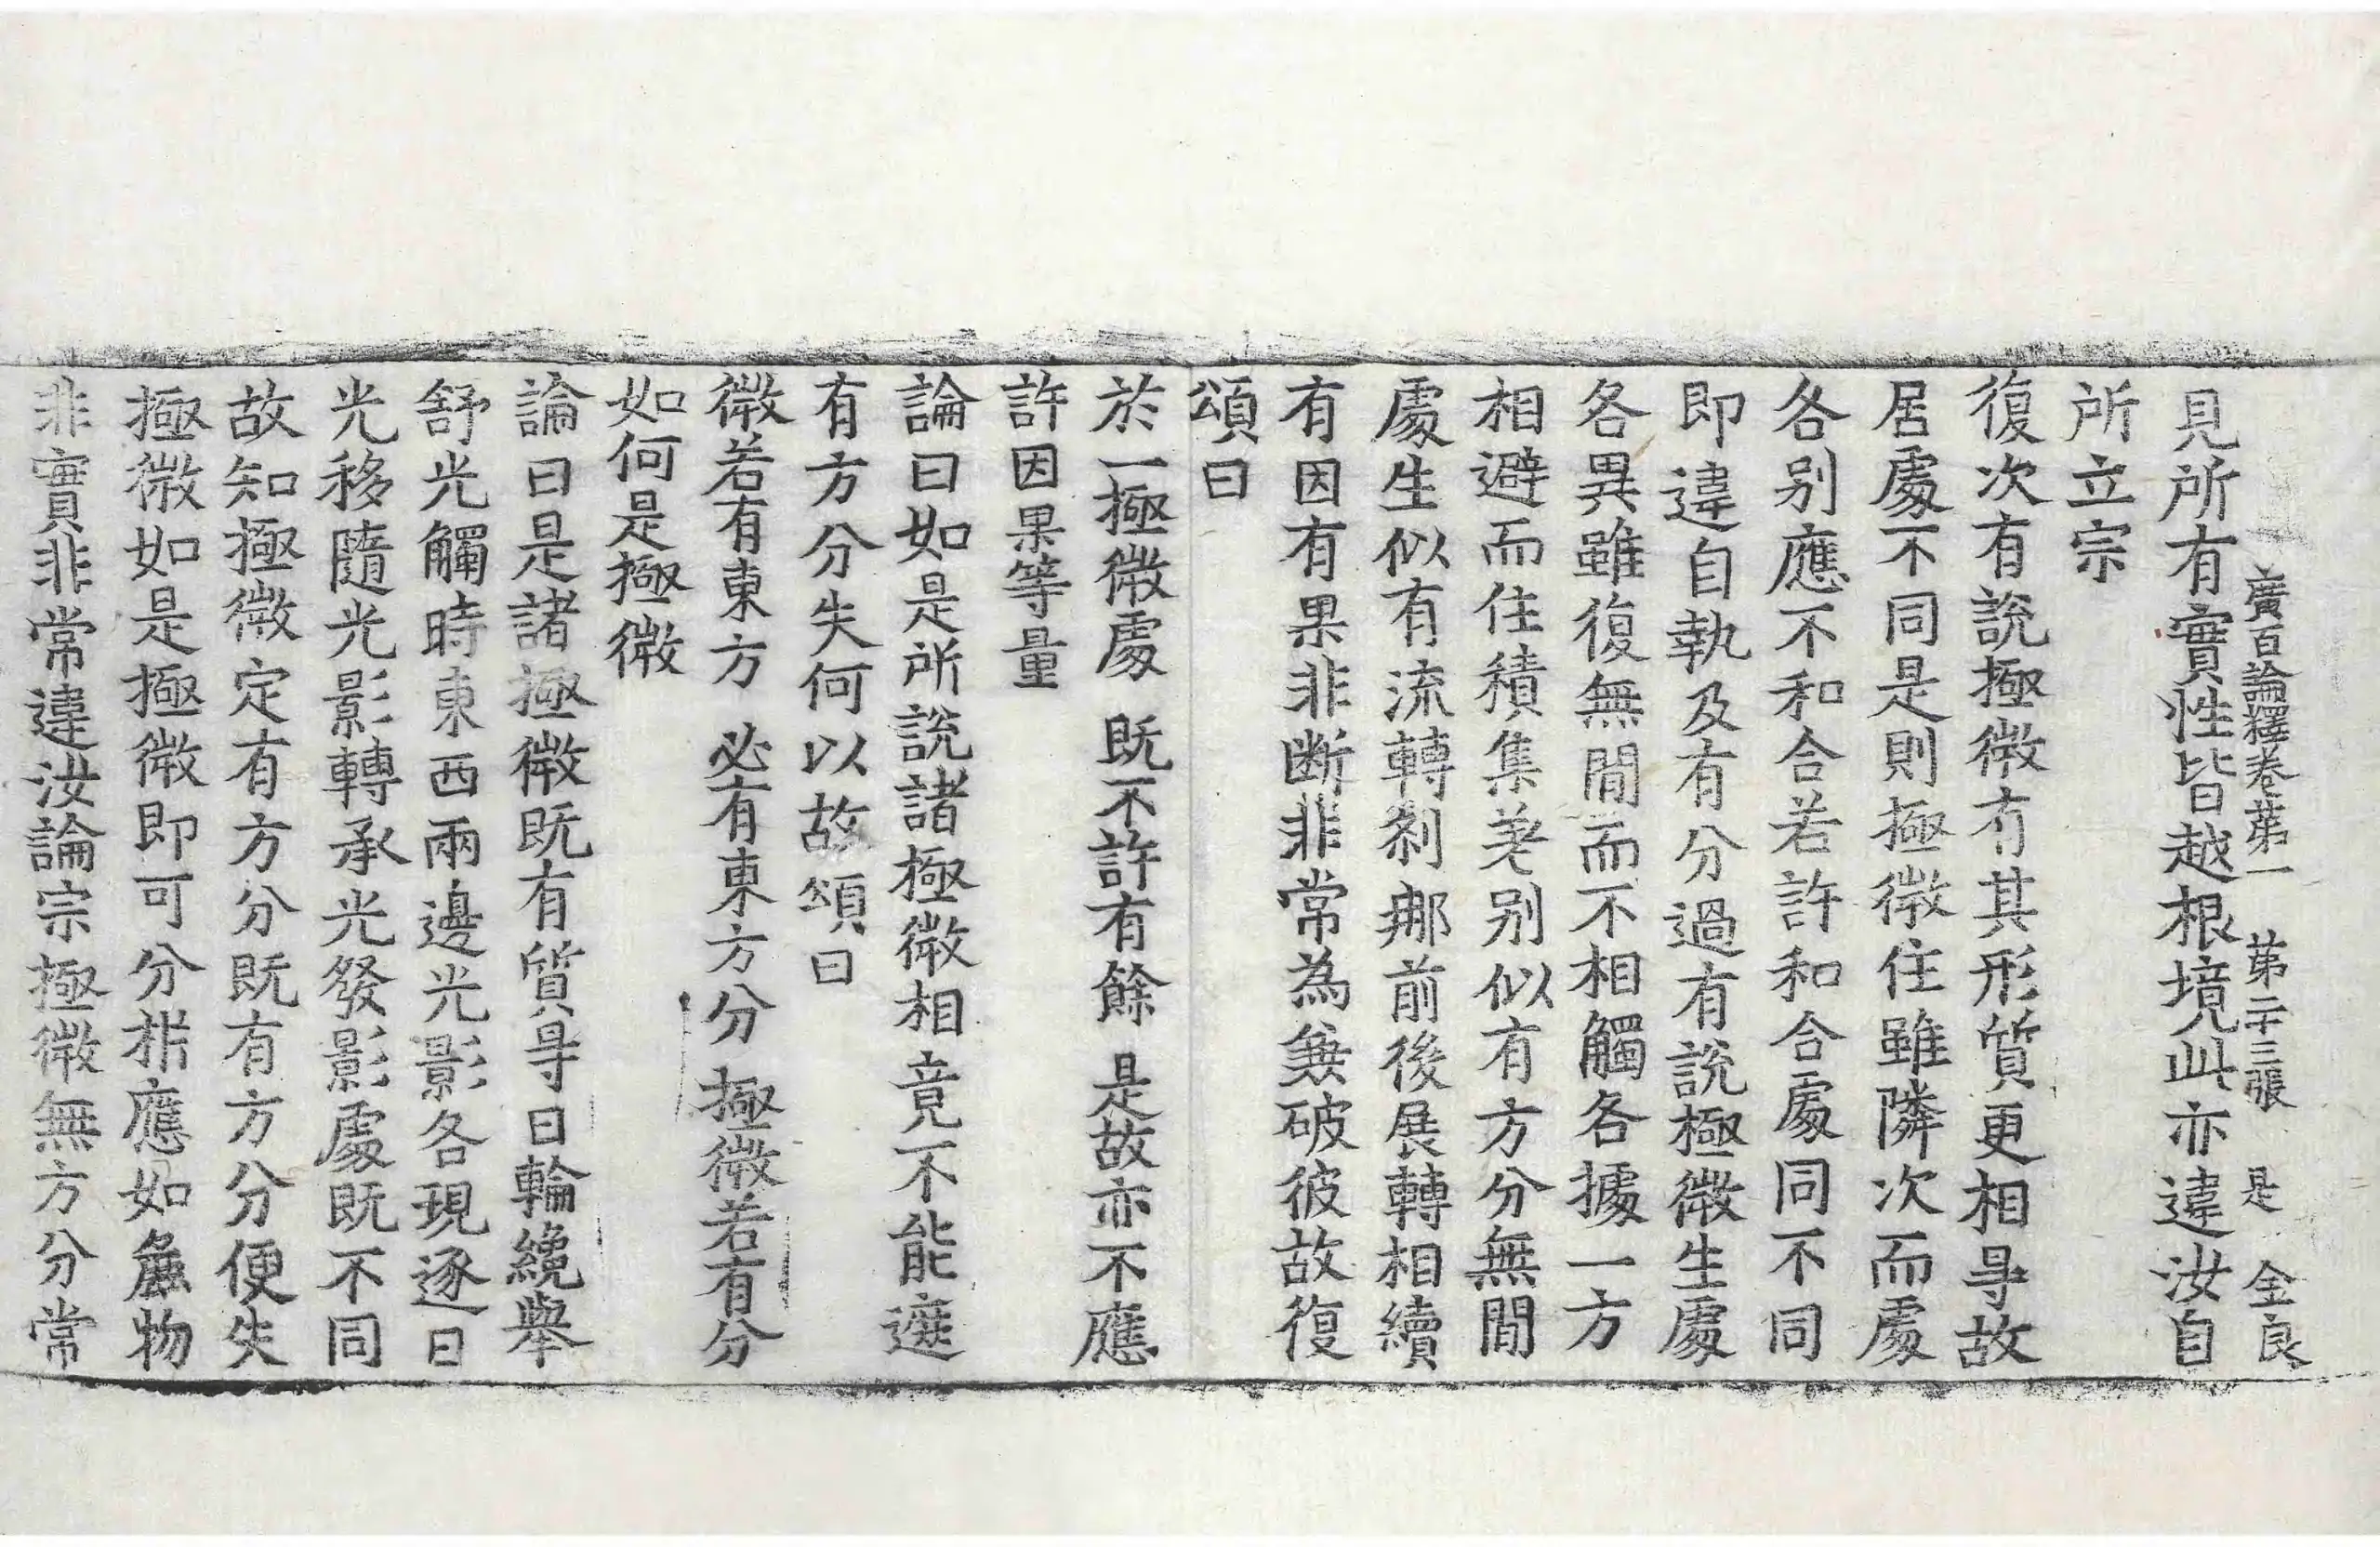 廣百論釋卷第一 第二十三張 是 全良
見所有實性皆越根境此亦違汝自
所立宗
復次有說極微有其形質更相㝵故
居處不同是則極微住雖隣次而處
各別應不和合若許和合處同不同
即違自執及有分過有說極微生處
各異雖復無間而不相觸各據一方
相避而住積集差别似有方分無間
處生似有流轉剎那前後展轉相續
有因有果非断非常為兼破彼故復
頌曰
於一極微處 既不許有餘 是故亦不應
許因果等量
論曰如是所說諸極微相竟不能遮
有方分失何以故頌曰
微若有東方 必有東方分 極微若有分
如何是極微
論曰是諸極微既有質㝵日輪纔舉
舒光觸時東西兩邊光影各現逐日
光移隨光影轉承光發影處既不同
故知極微定有方分既有方分便失
極微如是極微即可分㭊應如麁物
非實非常違汝論宗極微無方分常